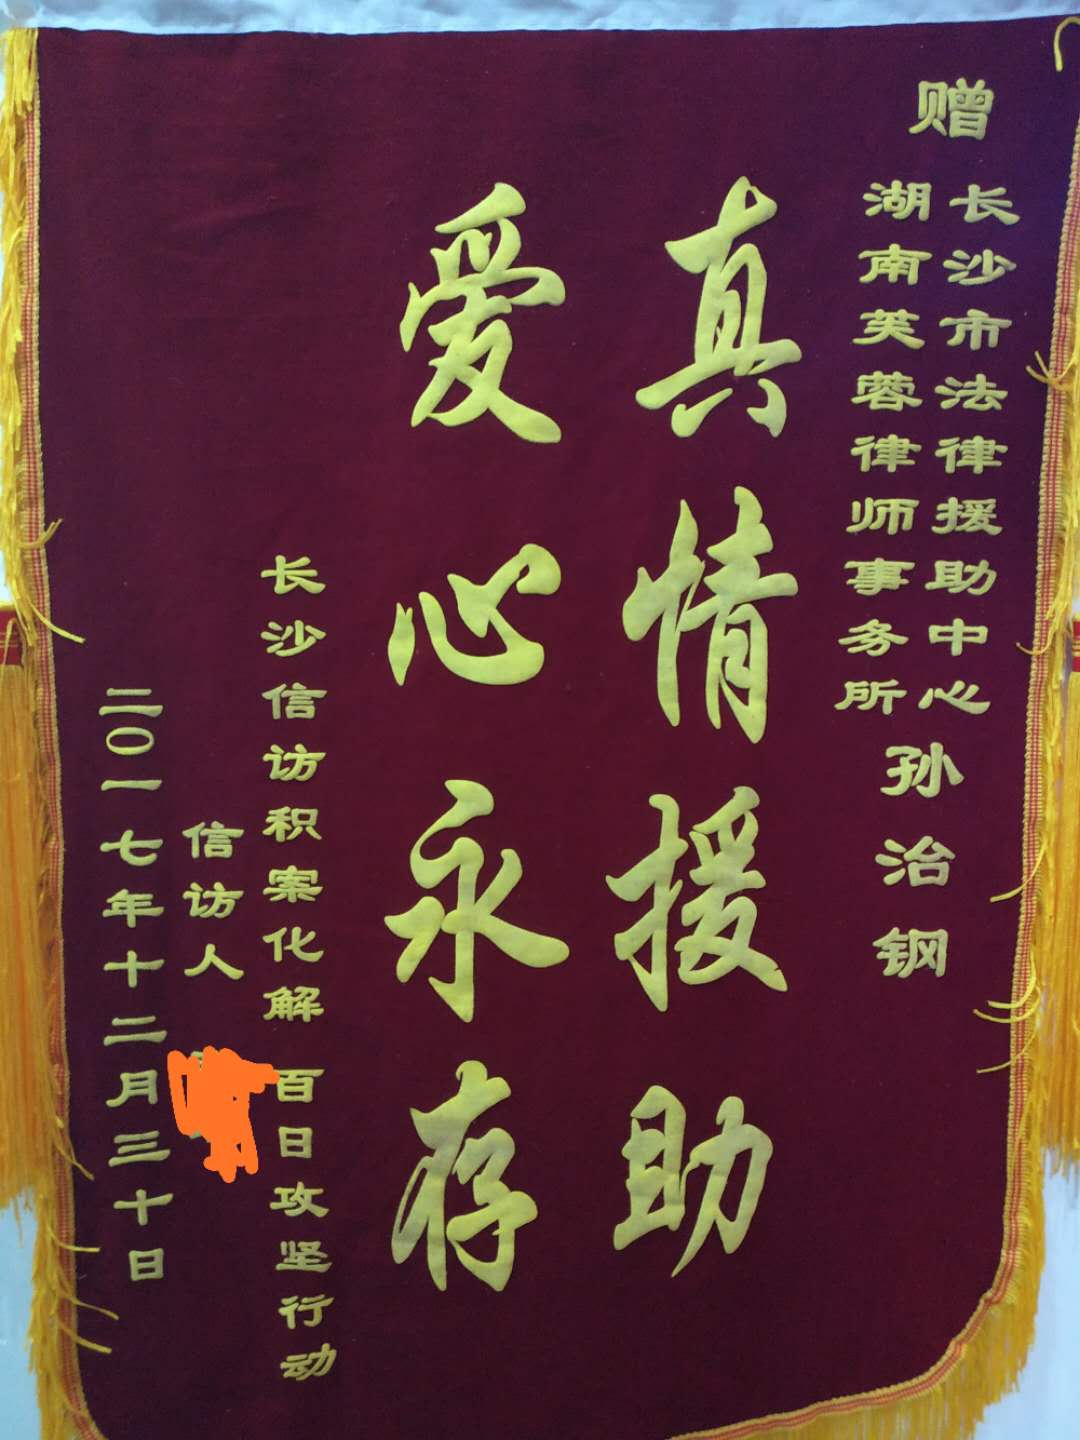 赠
长沙市法律援助中心
湖南芙蓉律师事务所
孙治钢
真情援助
爱心永存
长沙信访积案化解 百日攻坚行动
信访人
二〇一七年十二月三十日